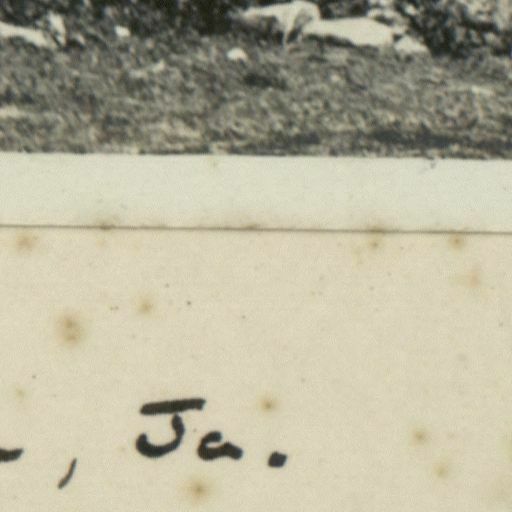 , Ja.